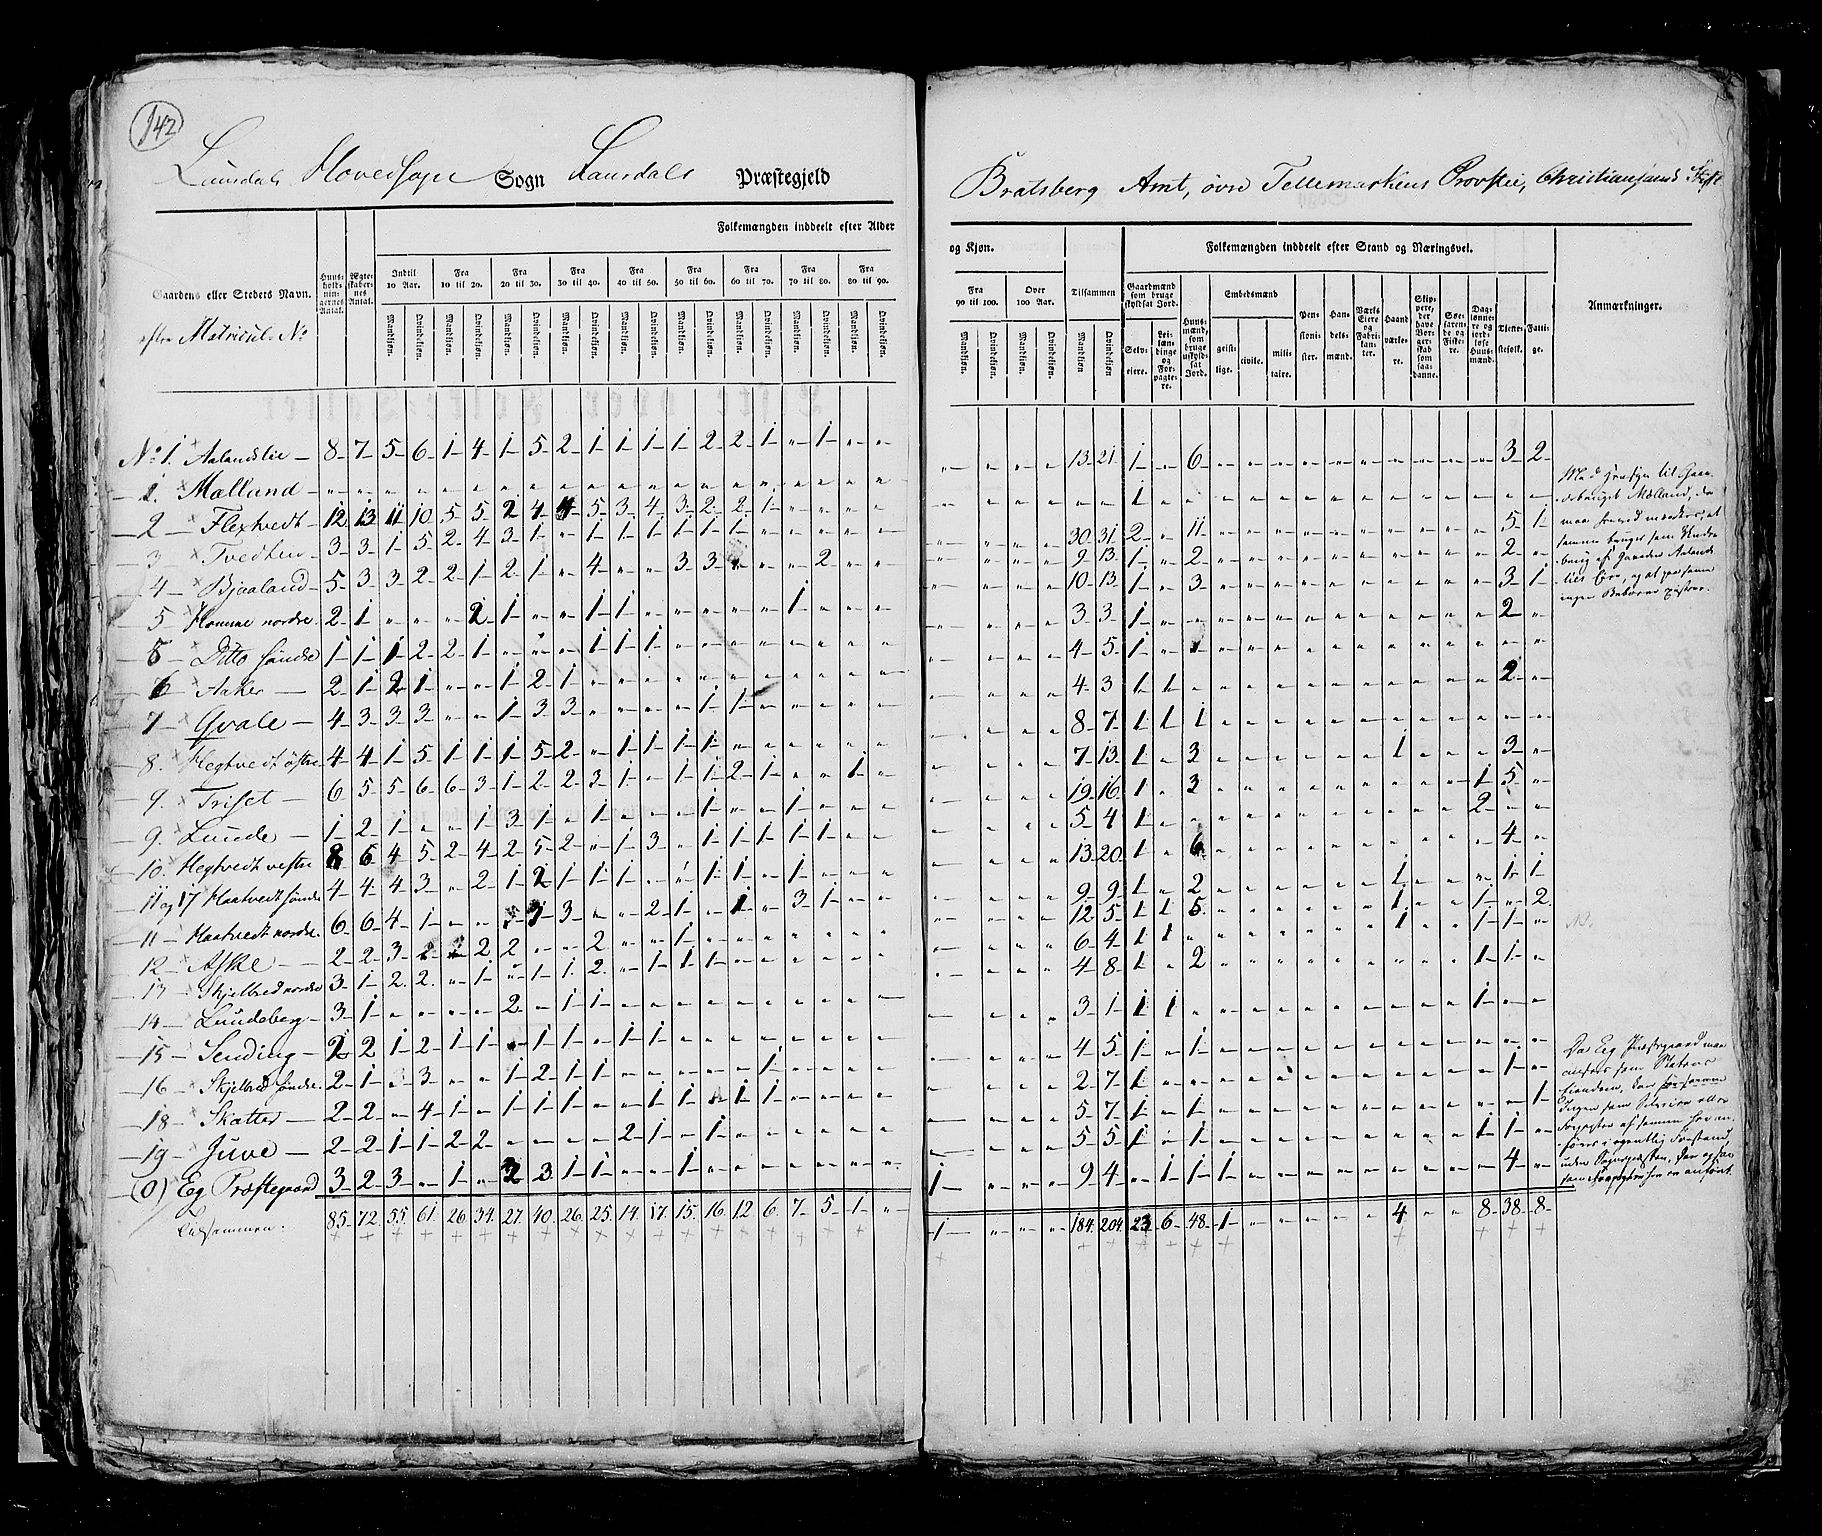 142
Hovedsogn Sogn Laurdals Præstegjeld
Bratsberg Amt, øvre Tellemarkens Provstie, Christiansands Stift
Folkemængden inddeelt efter Alder
og Kjøn.
Tilsammen
Folkemængden inddeelt efter Stand og Næringsvei.
Gaardens eller Stedets Navn.
efter Matricul. No
Huusholdningernes Antal.
Ægteskabernes Antal.
Indtil 10 Aar.
Fra 10 til 20.
Fra 20 til 30.
Fra 30 til 40.
Fra 40 til 50.
Fra 50 til 60.
Fra 60 til 70.
Fra 70 til 80.
Fra 80 til 90.
Fra 90 til 100.
Over 100 Aar.
Mandkjøn. Qvindekjøn.
Gaardmænd som bruge skyldsat Jord.
Selveiere.
Leilændinge og Forpagtere.
Huusmænd, som bruge uskyldsat Jord.
Embedsmænd
geistlige. civile. militaire.
Pensionister.
Handelsmænd.
Værks Eiere og Fabrikanter.
Haandværkere.
Skippere, der have Borgerskab som saadanne.
Søefarende og Fiskere.
Daglønnere og jordløse Huusmænd.
Tjenestefolk.
Fattige.
Anmærkninger.
No 1. Aalandslie 8 7 5 6 1 4 1 5 2 1 1 1 1 2 2 1 " 1 " " " " " " 13 21 1 " 6 " " " " " " " " " " 3 2
1. Mælland " " " " " " " " " " " " " " " " " " " " " " " " " " 1
2 Flextvedt 12 13 11 10 5 5 2 4 4 5 3 4 3 2 2 1 " " " " " " " " 30 31 2 " 11 " " " " " " " " " " 5 1
3 Tvedten 3 3 1 5 2 4 3 1 " 1 1 1 1 1 1 " " " " " " " " " 9 13 1 " 2 " " " " " " " " " " 2 "
4 Bjaaland 5 3 3 2 2 1 2 1 " 4 " " 3 3 " " " 2 " " " " " " 10 13 1 " 3 " " " " " " " " " " 3 1
5 Homme nordre 2 1 " " " 2 1 " " 1 1 " " " " " 1 " " " " " " " 3 3 " 2 "
5 Ditto søndre 1 1 1 2 2 1 " " " 1 1 1 " " " " " " " " " " " " 4 5 1
6 Aaker 2 1 2 1 " " 1 2 1 " " " " " " " " " " " " " " " 4 3 1 1 " 2 "
7 Qvale 4 3 3 3 " " 1 3 3 " " " " 1 1 " " " " " " " " " 8 7 1 1 1
8. Hegtvedt østre 4 4 1 5 1 1 1 5 2 " 1 1 1 1 " " " " " " " " " " 7 13 1 " 3 " " " " " " 1 " " " 3 "
9. Triset 6 5 5 6 6 3 1 2 2 3 1 " 1 1 2 1 " " 1 " " " " " 19 16 1 " 3 " " " " " " " " " 1 5 "
9. Lunde 1 2 1 " " 1 3 1 " 1 " " " 1 " " 1 " " " " " " " 5 4 1 " " " " " " " " " " " 2 " "
10. Hegtvedt vestre 8 6 4 5 2 4 2 5 2 " 1 3 " 1 1 1 1 1 " " " " " " 13 20 1 " 6 " " " " " " " " " " 4 "
11 og 17 Haatvedt søndre 4 4 4 3 " 2 1 2 1 1 1 " 1 1 1 " 1 " " " " " " " 9 9 1 " 2 " " " " " " 1 " " " 1 1
11 Haatvedt nordre 6 6 4 1 " " " 3 " " 2 1 " 1 " 3 1 " " " " " " 12 5 1 1 5 " " " " " " 1 " " 1 " 2
12 Aske 2 2 3 " 2 2 " " 2 " " 1 " " " " " " " " " " " 6 4 1 1 " " " " " " " 1 " " 1 1 "
13 Skjelbred nordre 3 1 2 2 " 1 " 1 1 2 " 1 1 1 " " " " " " " " " " 4 8 1 " 2 " " " " " " " " " 1 1 "
14 Lundeberg 3 1 " " " " 2 " 1 1 " " " " " " " " " " " " " " 3 1 1 1 " " " " " " " " " " 1 " "
15 Sending 2 2 1 2 1 1 " 1 1 1 1 1 " " " " " " " " " " " " 4 5 1 " 1
16 Skjelbred søndre 2 1 " 3 " " 1 2 1 1 " " " " " 1 " " " " " " " " 2 7 1 " 1 "
18 Skatter 2 2 " 4 1 " 1 1 1 1 1 1 1 " 1 1 " " " " " " " " 5 7 1 " 1 " 1
19 Juve 2 2 1 1 2 2 " " " " 2 1 " 1 " " " " " " " " " " 5 5 1 " 1 " " " " " " " " " 1 1 "
(0) Eg Præstegaard 3 2 3 " 1 " 2 3 1 1 " " 1 " " " " " " " 1 " " " 9 4 " 1 1 1 " " " " " " " " " 4 "
Tilsammen. 85 72 55 61 26 34 27 40 26 25 14 17 15 16 12 6 7 5 1 " 1 " " " 184 204 23 6 48 1 " " " " " 4 " " 8 38 8
Med Hensyn til Gaardebruget Mælland, da
samme bruges som Underbrug af Gaarden Aalandslies Eier, og at paa samme
ingen Beboere existerer.
Da Eeg Præstegaard maa
ansees som Statens
Eiendom, kan
Ingen som Selveier eller
Forpagter af samme